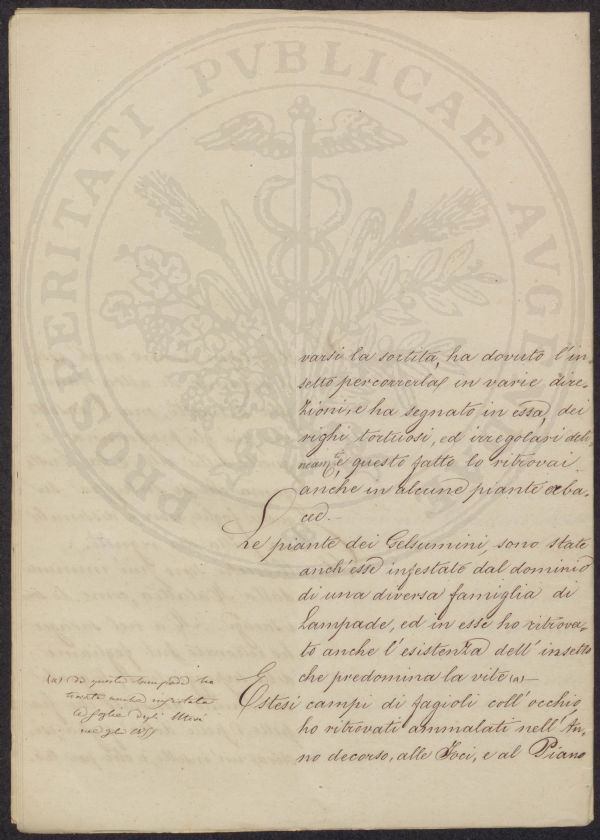 PROSPERITATI PVBLICAE AVGENDAE
varsi la sortita, ha dovuto l'in=
setto percorrerla in varie dire=
zioni, e ha segnato in essa, dei
righi tortuosi, ed irregolari deli=
neam.ti, questo fatto lo ritrovai
anche in alcune piante erba=
cee.—
Le piante dei Gelsumini, sono state
anch'esse infestate dal dominio
di una diversa famiglia di
Lampade, ed in esse ho ritrova=
to anche l'esistenza dell'insetto
che predomina la vite (a)—
Estesi campi di fagioli coll'occhio,
ho ritrovati ammalati nell'An=
no decorso, alle Foci, e al Piano
(a) da queste lampade ho
trovato anche infestata
le foglie degli
negli